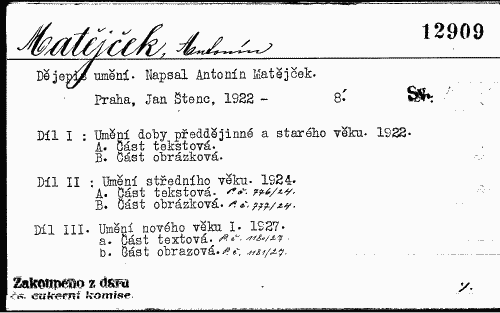 12909
Matějček, Antonín
Dějepis umění. Napsal Antonín Matějček.
Praha, Jan Štenc, 1922 - 8°. Sv.
Díl I : Umění doby předdějinné a starého věku. 1922.
A. Část tekstová.
B. Část obrázková.
Díl II : Umění středního věku. 1924.
A. Část tekstová. P.č. 776/24.
B. Část obrázková. P.č. 777/24.
Díl III. Umění nového věku I. 1927.
a. Část textová. P.č. 1180/27.
b. Část obrazová. P.č. 1181/27.
Zakoupeno z daru
čs. cukerní komise.